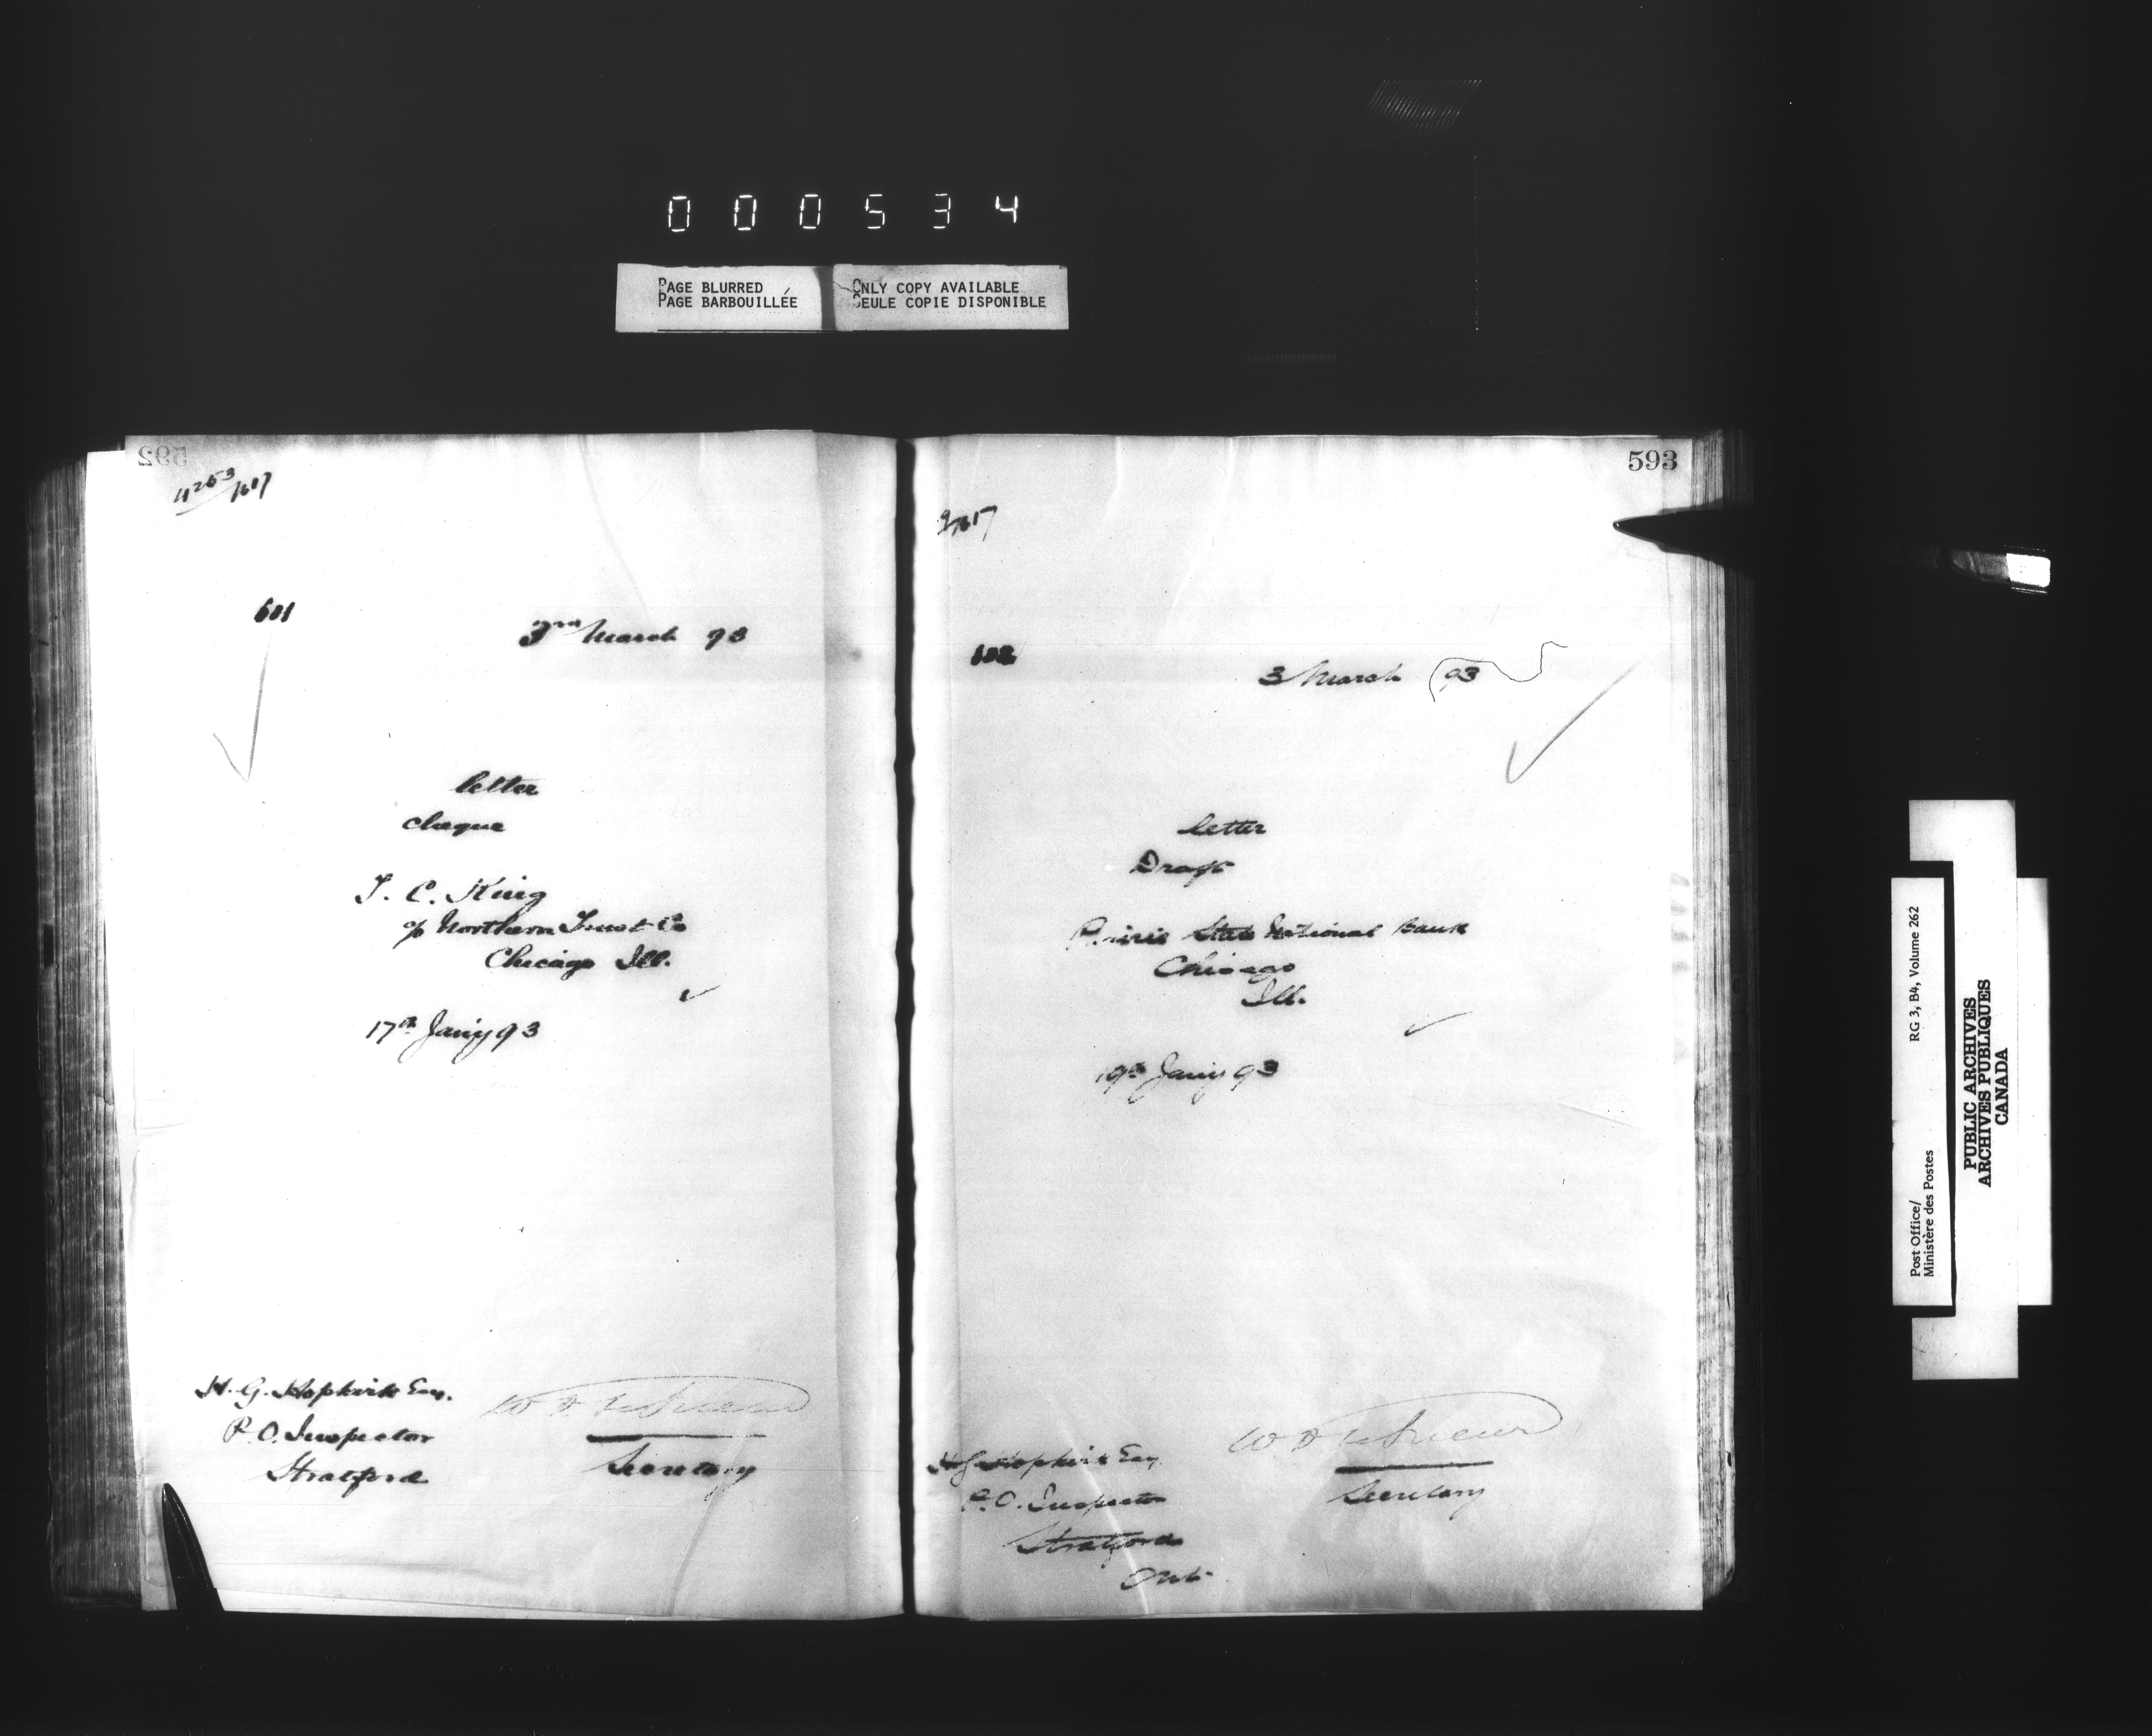 000534
PAGE BLURRED
PAGE BARBOUILLÉE
ONLY COPY AVAILABLE
SEULE COPIE DISPONIBLE
592
601
3rd March 93
letter
cheque
T. C. King
c/o Northern Trust Co
Chicago Ill.
17th Jany 93
H. G. Hopkirk Esq.
P.O. Inspector
Stratford
W D LeSueur
Secretary
593
602
3 March 93
letter
Draft
Prairie State National Bank
Chicago
Ill.
19th Jany 93
H G Hopkirk Esq
P.O. Inspector
Stratford
Ont.
W D LeSueur
Secretary
Post Office/
Ministère des Postes
RG 3, B4, Volume 262
PUBLIC ARCHIVES
ARCHIVES PUBLIQUES
CANADA